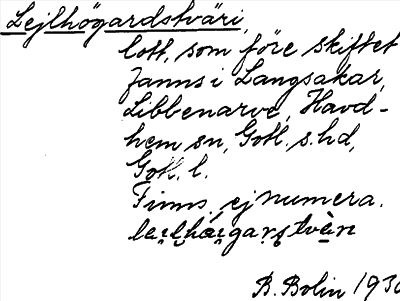 Lejlhögardstväri,
lott, som före skiftet
fanns i Langsakar,
Libbenarve, Havd-
hem sn, Gotl. s. hd,
Gotl. l.
Finns ej numera.
B. Bolin 1930